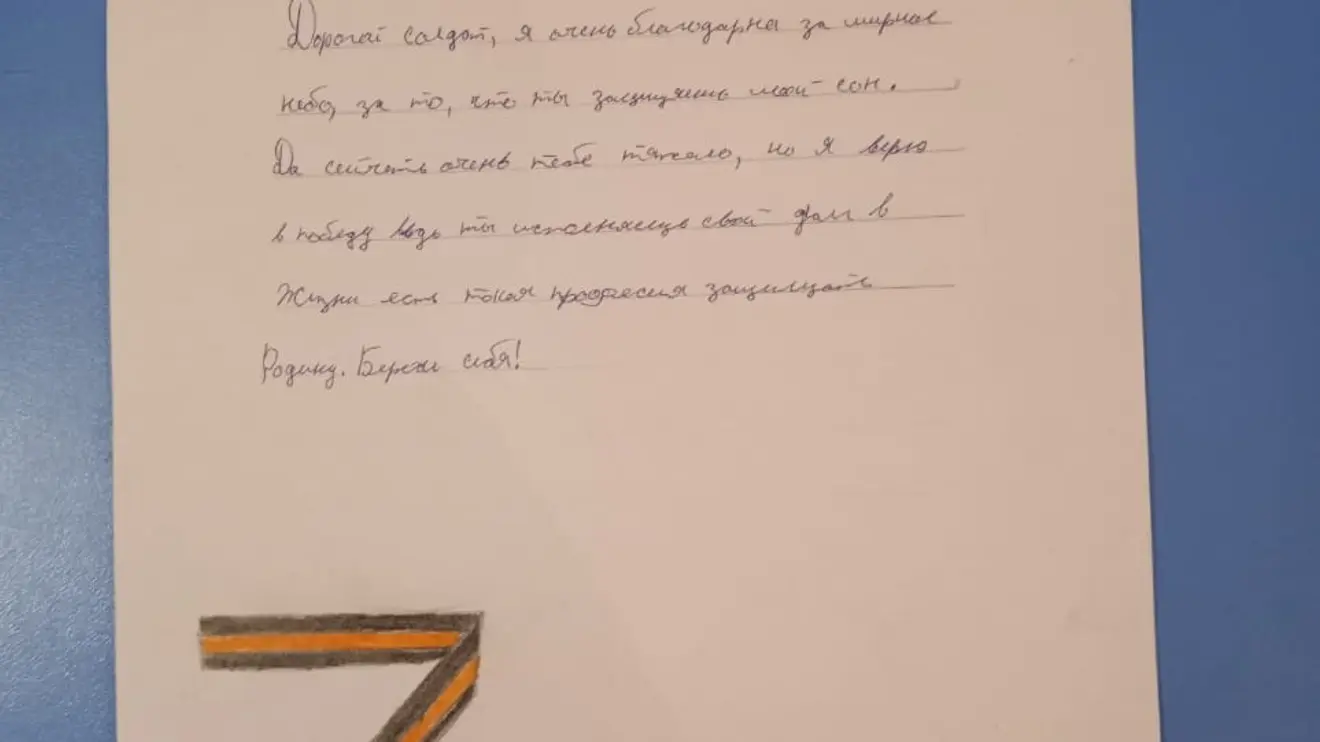 Дорогой солдат, я очень благодарна за мирное
небо, за то, что ты защищаешь мой сон.
Да сейчать очень тебе тяжело, но я верю
в победу ведь ты исполняешь свой долг в
жизни есть такая професия защищать
Родину. Береги себя!